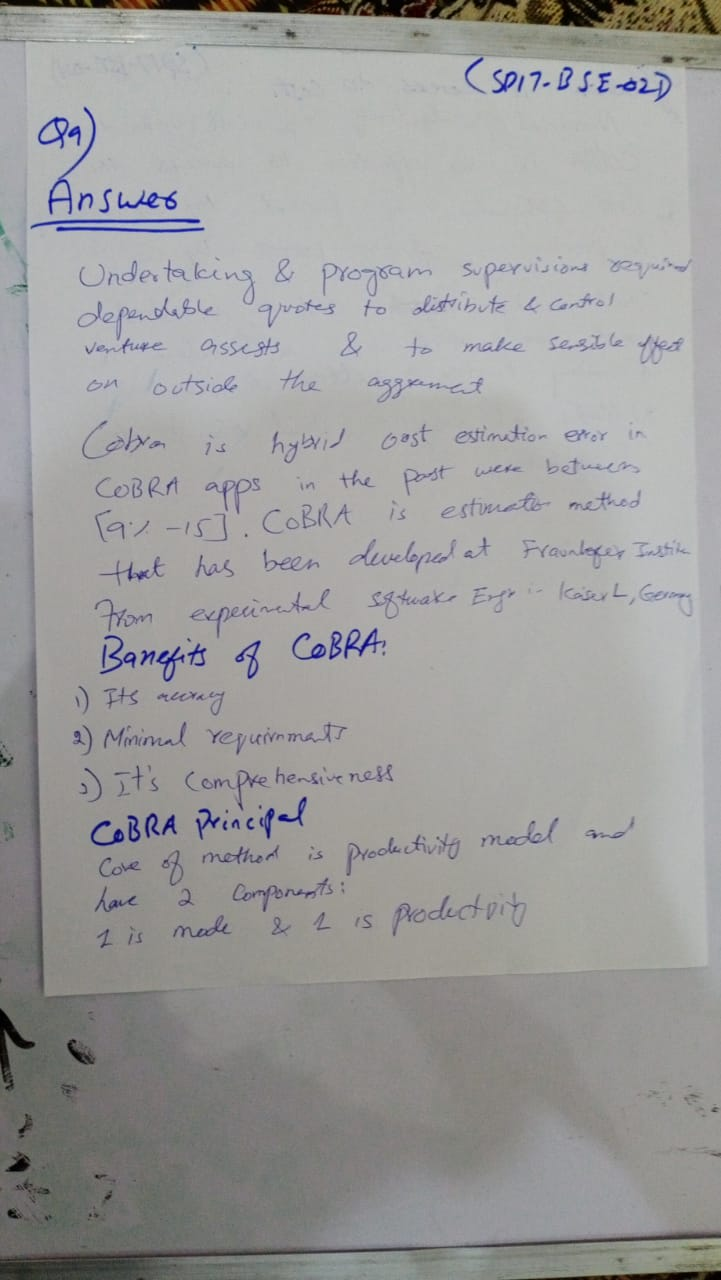 (SP17-BSE-021)
Q9)
Answer
Undertaking & program supervisions required
dependable quotes to distribute & control
venture assests & to make sensible effect
on outside the aggrement
Cobra is hybrid cost estimation error in
COBRA apps in the past were between
[9% -15]. COBRA is estimator method
that has been developed at Fraunhofer Institu
From experimental software Engr in Kaiser L, Germany
Banefits of COBRA:
1) Its accuracy
2) Minimal requirnments
3) It's Comprehensiveness
COBRA Principal
Core of method is productivity model and
have 2 Components:
1 is mode & 1 is productivity